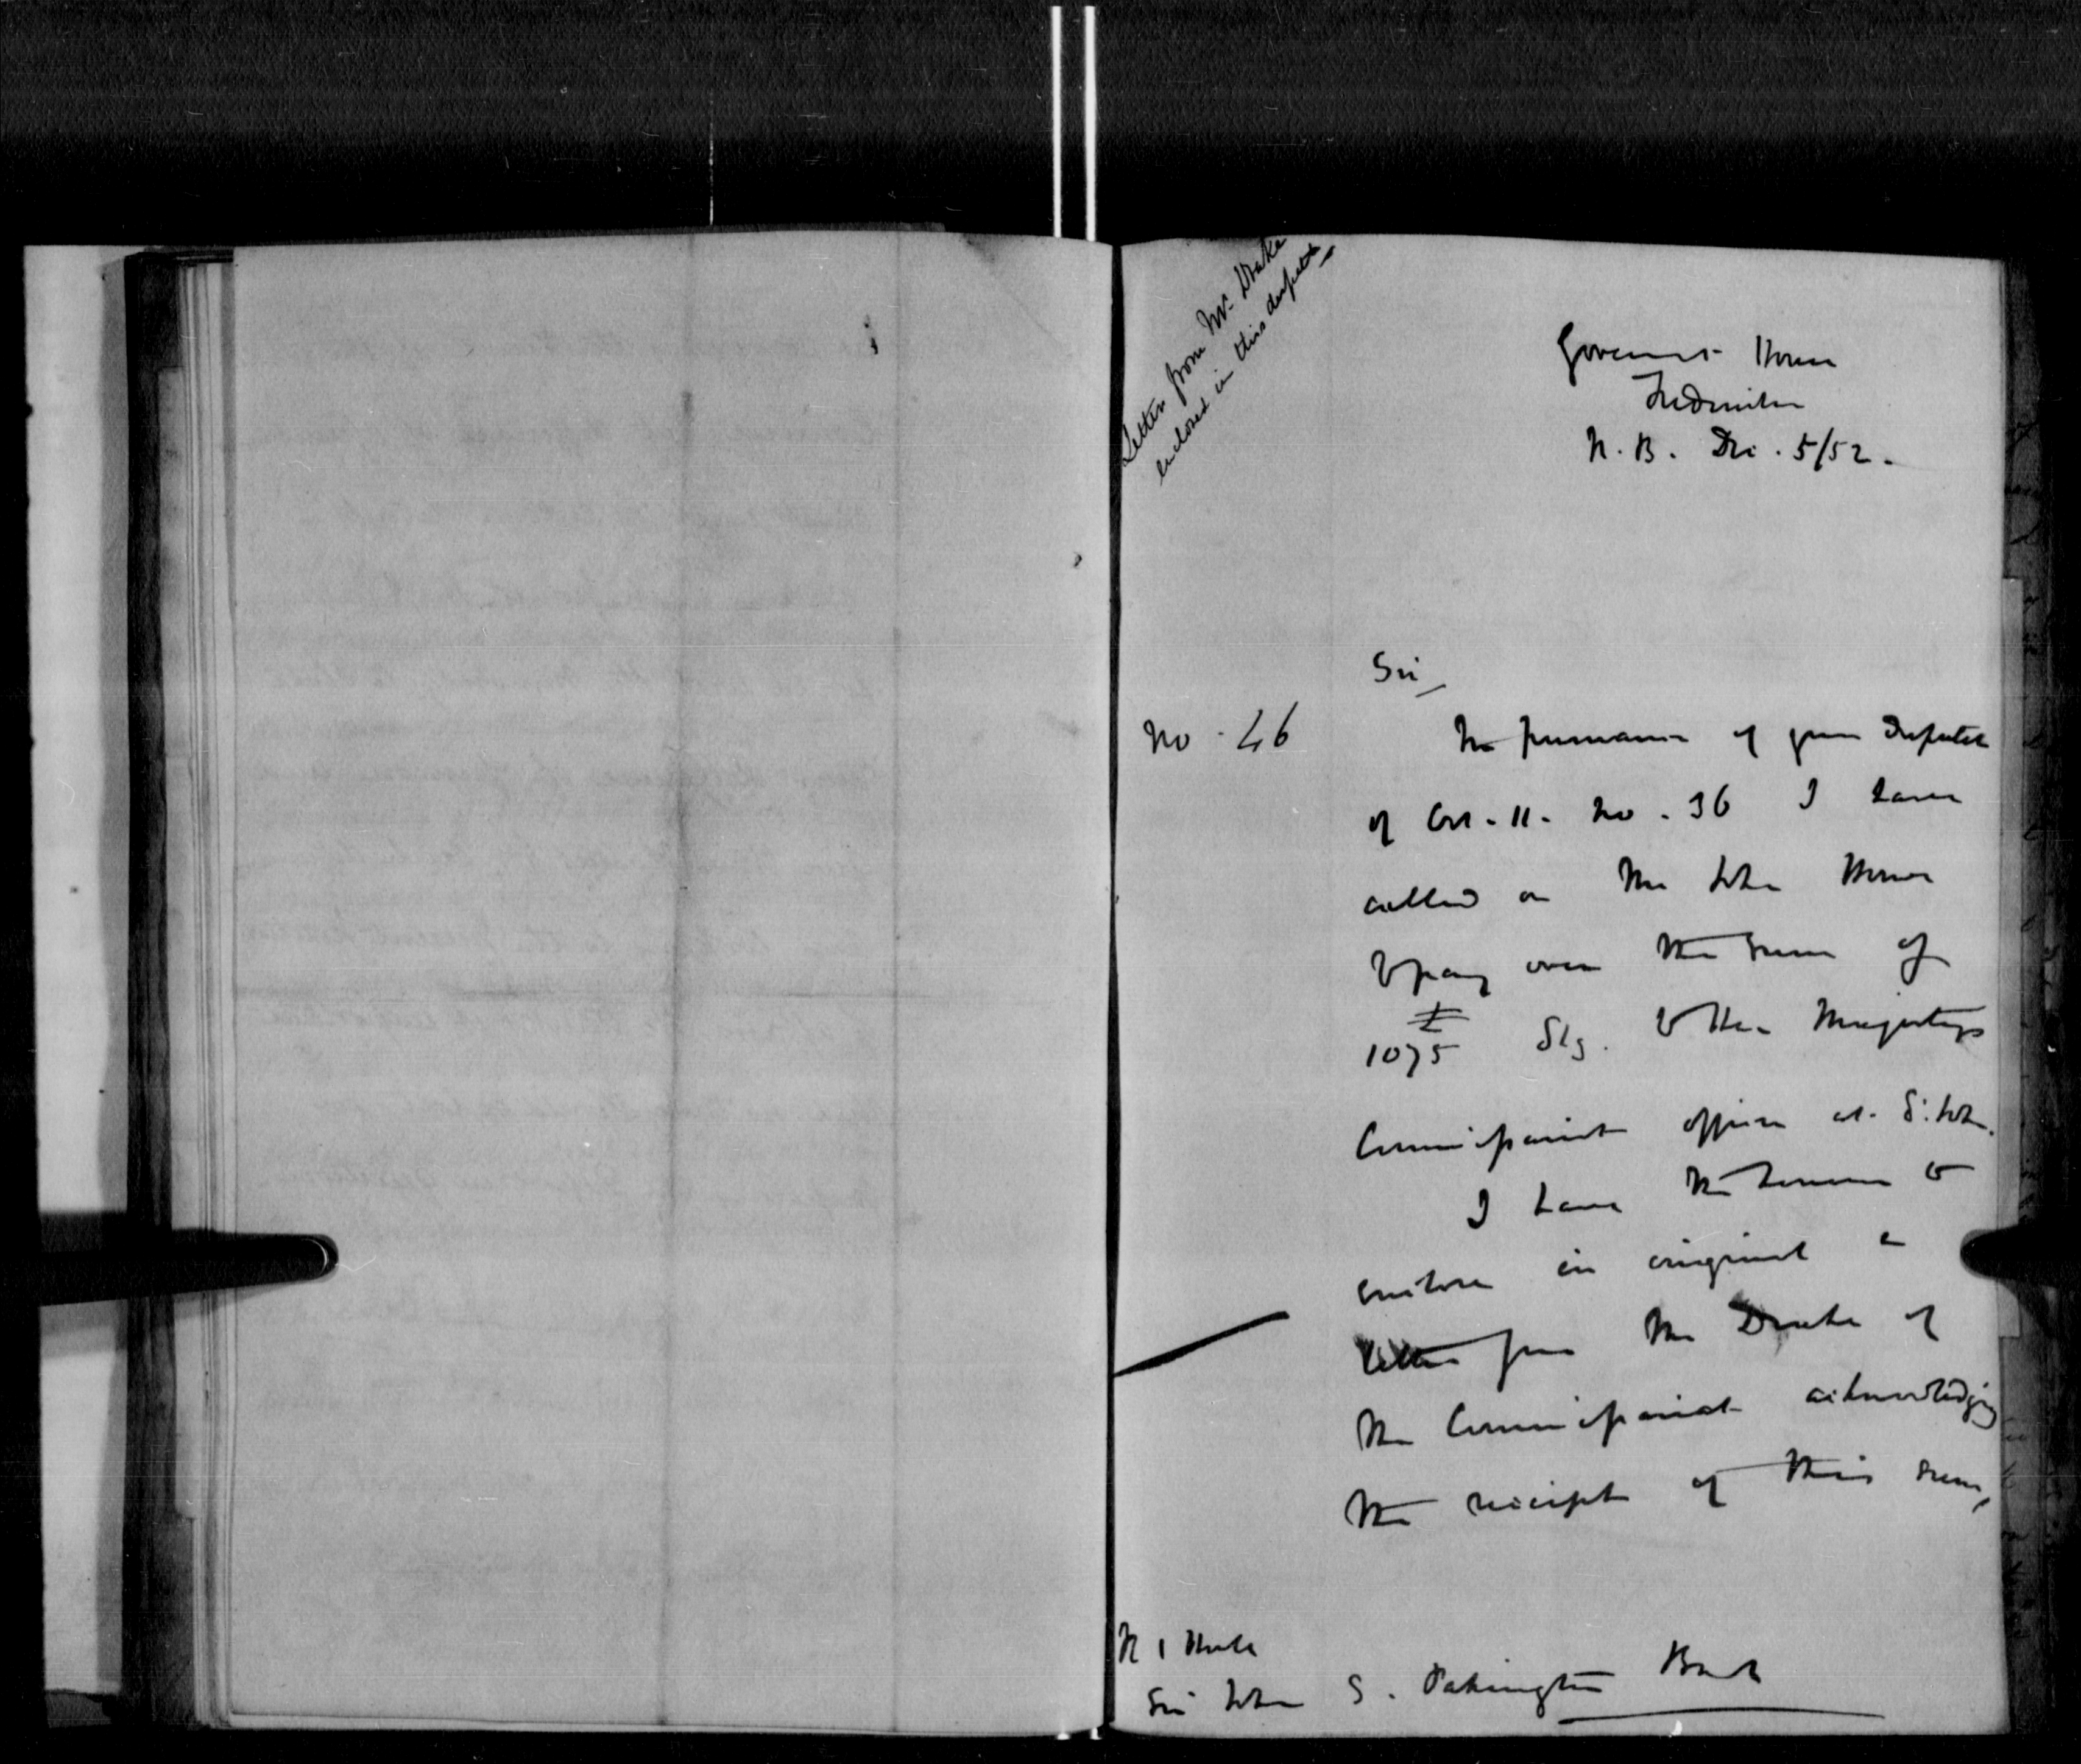 Letter from Mr. Drake
enclosed in this despatch
Government House
Fredericton
N.B. Dec. 5/52.
Sir
No. 46
In pursuance of your Despatch
of Oct. 11. No. 36 I have
called on Mr John
to pay over the sum of
£
1075 Stg. to Her Majesty's
Commissariat officer at St. John.
I have the honor to
enclose in original a
letter from Mr Drake of
the Commissariat acknowledging
the receipt of this sum,
Sir John S. Pakington Bart